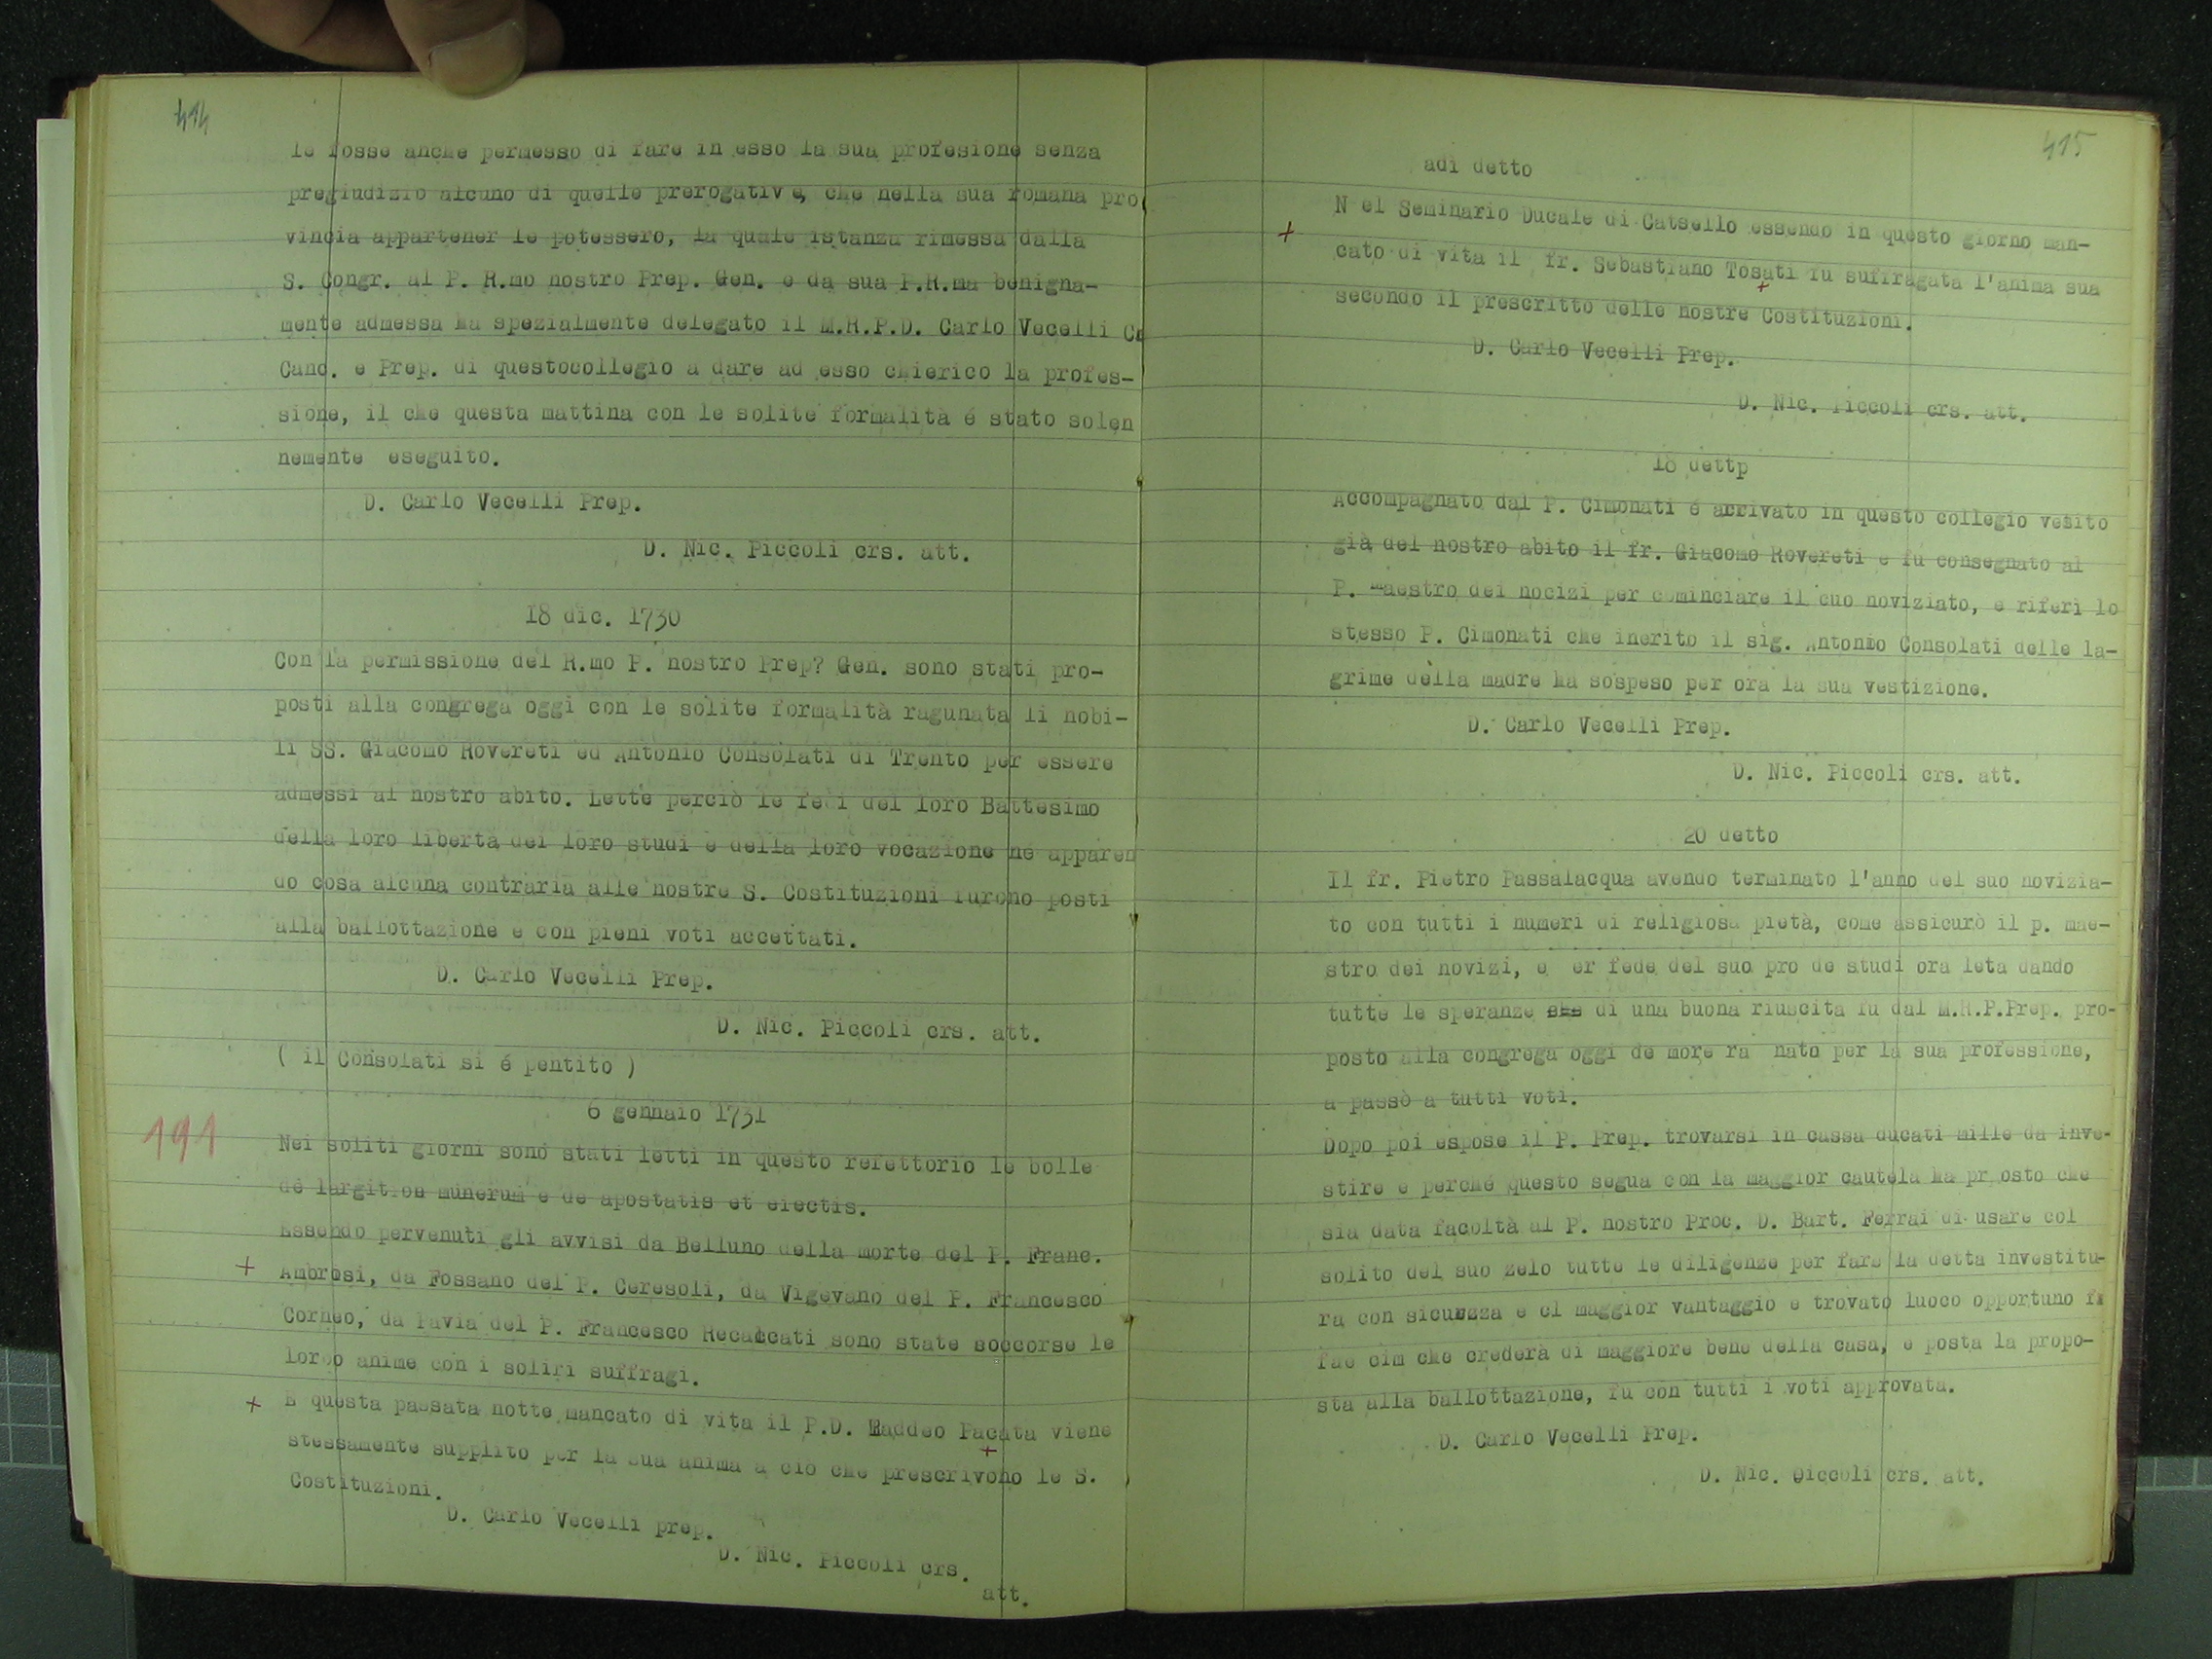 414
le fosse anche permesso di fare in esso la sua profesione senza
pregiudizio alcuno di quelle prerogative, che nella sua romana pro
vincia appartener le potessero, la quale istanza rimessa dalla
S. Congr. al P. R.mo nostro Prep. Gen. e da sua P.R.ma benigna-
mente admessa ha spezialmente delegato il M.R.P.D. Carlo Vecelli Ca
Canc. e Prep. di questocollegio a dare ad esso chierico la profes-
sione, il che questa mattina con le solite formalità é stato solen
nemente eseguito.
D. Carlo Vecelli Prep.
D. Nic. Piccoli crs. att.
18 dic. 1730
Con la permissione del R.mo P. nostro Prep? Gen. sono stati pro-
posti alla congrega oggi con le solite formalità ragunata li nobi-
li SS. Giacomo Rovereti ed Antonio Consolati di Trento per essere
admessi al nostro abito. Lette perciò le fedi del loro Battesimo
della loro libertà dei loro studi e della loro vocazione né apparen
do cosa alcuna contraria alle nostre S. Costituzioni furono posti
alla ballottazione e con pieni voti accettati.
D. Carlo Vecelli Prep.
D. Nic. Piccoli crs. att.
( il Consolati si é pentito )
6 gennaio 1731
191
Nei soliti giorni sono stati letti in questo refettorio le bolle
de largition munerum e de apostatis et eiectis.
Essendo pervenuti gli avvisi da Belluno della morte del P. Franc.
+ Ambrosi, da Fossano del P. Ceresoli, da Vigevano del P. Francesco
Corneo, da Pavia del P. Francesco Recalcati sono state soccorse le
loroo anime con i soliri suffragi.
+ E questa passata notte mancato di vita il P.D. Raddeo Pacata viene
stessamente supplito per la sua anima a ciò che prescrivono le S.
Costituzioni.
D. Carlo Vecelli prep.
D. Nic. Piccoli crs.
att.
415
adì detto
N el Seminario Ducale di Catsello essendo in questo giorno man-
+ cato di vita il fr. Sebastiano Tosati fu suffragata l'anima sua
secondo il prescritto delle nostre Costituzioni.
D. Carlo Vecelli Prep.
D. Nic. Piccoli crs. att.
18 dettp
Accompagnato dal P. Cimonati é arrivato in questo collegio vesito
già del nostro abito il fr. Giacomo Rovereti e fu consegnato al
P. Maestro dei nocizi per cominciare il cuo noviziato, e riferì lo
stesso P. Cimonati che inerito il sig. Antonio Consolati delle la-
grime della madre ha sospeso per ora la sua vestizione.
D. Carlo Vecelli Prep.
D. Nic. Piccoli crs. att.
20 detto
Il fr. Pietro Passalacqua avendo terminato l'anno del suo novizia-
to con tutti i numeri di religiosa pietà, come assicurò il p. mae-
stro dei novizi, e er fede del suo pro de studi ora leta dando
tutte le speranze di una buona riuscita fu dal M.R.P.Prep. pro-
posto alla congrega oggi de more ra nato per la sua professione,
a passò a tutti voti.
Dopo poi espose il P. Prep. trovarsi in cassa ducati mille da inve-
stire e perché questo segua con la maggior cautela ha pr osto che
sia data facoltà al P. nostro Proc. D. Bart. Ferrai di usare col
solito del suo zelo tutte le diligenze per fare la detta investitu-
ra con sicurezza e cl maggior vantaggio e trovato luoco opportuno fa
fae cim che crederà di maggiore bene della casa, e posta la propo-
sta alla ballottazione, fu con tutti i voti approvata.
D. Carlo Vecelli Prep.
D. Nic. Qiccoli crs. att.